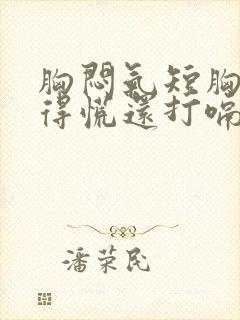 胸悶氣短胸
得慌還打嗝
潘荣民